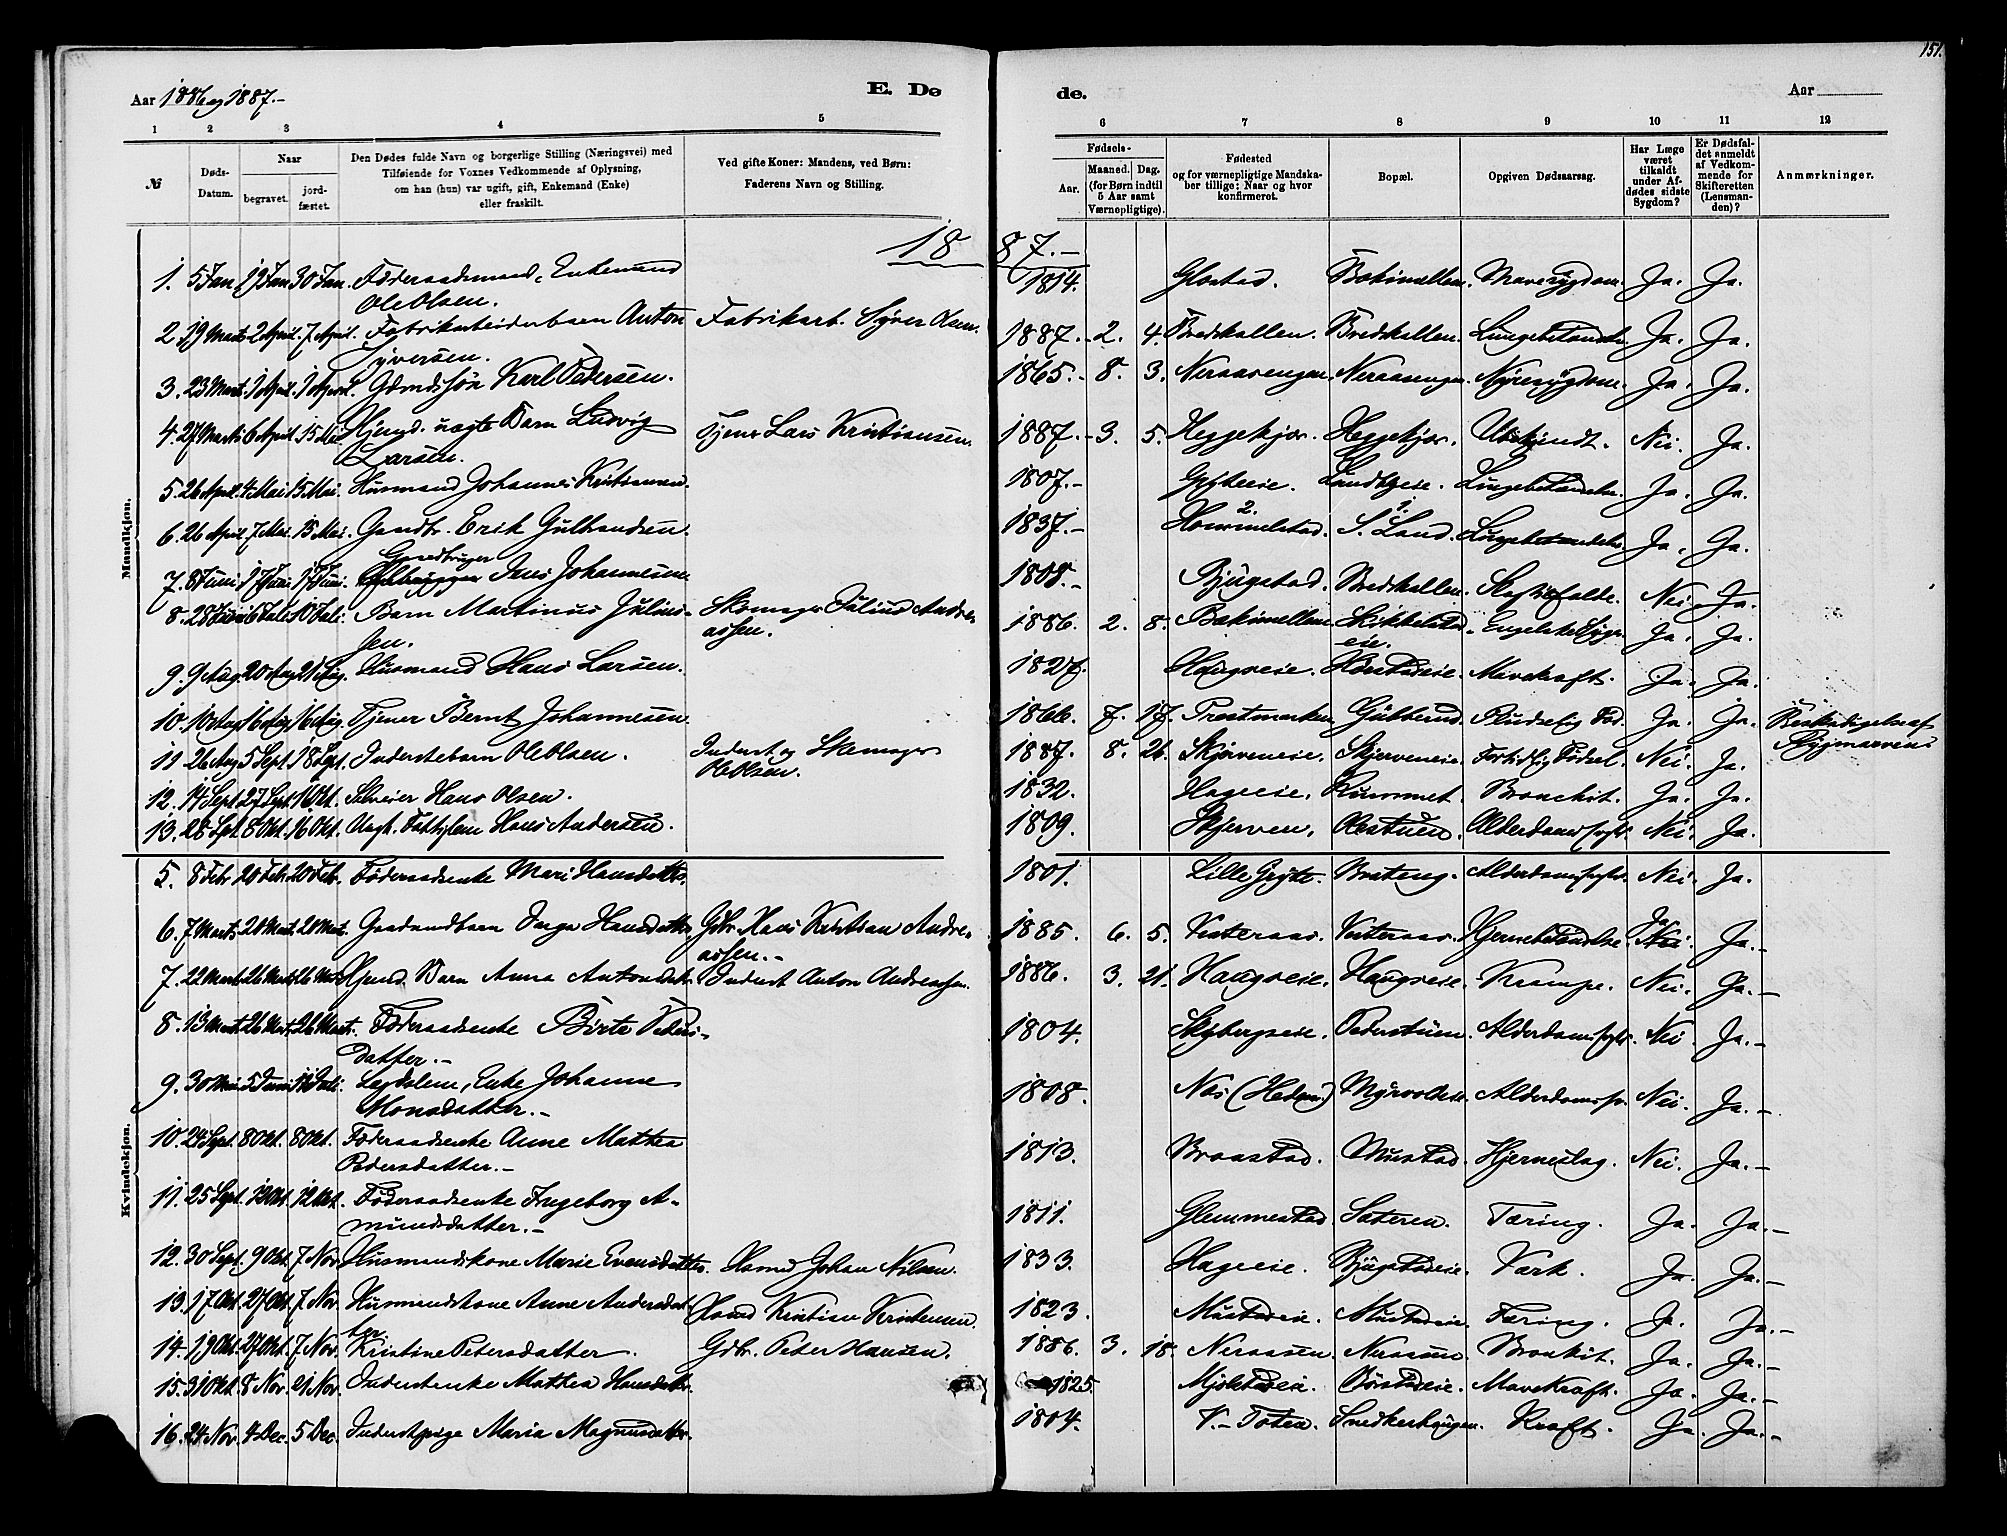 151.
Aar 1886 og 1887.-
E. Dø
de.
Aar
1 2 3 4 5 6 7 8 9 10 11 12
№
Døds-Datum.
Naar
begravet.
jord-fæstet.
Den Dødes fulde Navn og borgerlige Stilling (Næringsvei) med
Tilføiende for Voxnes Vedkommende af Oplysning,
om han (hun) var ugift, gift, Enkemand (Enke)
eller fraskilt.
Ved gifte Koner: Mandens, ved Børn:
Faderens Navn og Stilling.
Fødsels-
Aar.
Maaned. Dag.
(for Børn indtil
5 Aar samt
Værnepligtige).
Fødested
og for værnepligtige Mandska-
ber tillige: Naar og hvor
konfirmeret.
Bopæl.
Opgiven Dødsaarsag.
Har Læge
været
tilkaldt
under Af-
dødes sidste
Sygdom?
Er Dødsfal-
det anmeldt
af Vedkom-
mende for
Skifteretten
(Lensman-
den)?
Anmærkninger.
1887.-
Mandkjøn.
1. 5 Jan 19 Jan 30 Jan. Føderaadsmand, Enkemand 1814. Glæstad. Bakimellem. Mavesygdom. Ja. Ja.
Ole Olsen.
2. 19 Marts 2 April. 7 April. Fabrikarbeiderbarn Anton Fabrikarb. Syver Olsen. 1887. 2. 4. Bredskallen. Bredskallen. Lungebetændelse Ja. Ja.
Syversen.
3. 23 Marts 9 April 9 April. Gdmdssøn Karl Pedersen. 1865. 8. 3. Neraasengen. Neraasengen. Nyresygdom. Ja. Ja.
4. 27 Marts 6 April 15 Mai. Hjemd. uægte Barn Ludvig Tjener Lars Kristiansen. 1887. 3. 5. Heggekjær. Heggekjær. Ubekjendt. Nei. Ja.
Larsen.
5. 26 April 4 Mai 15 Mai. Husmand Johannes Kristiansen. 1807.- Gjøteeie. Lungebetændelse. Ja. Ja.
6. 26 April 7 Mai. 15 Mai. Gaardbr. Erik Gulbrandsen. 1837.- Hommelstad. S. Land. Lungebetændelse Ja. Ja.
Gaardbruger
7. 8 Juni 17 Juni. 17 Juni. Jens Johannesen 1808.- Bjugstad. Bredskallen. Nei. Ja.
8. 28 Juni 6 Juli 10 Juli. Barn Martinus Julius- Skomager Julius Andre- 1886. 2. 8. Bakimellem Skikkelstad- Engelsk Syge. Ja. Ja.
sen. assen. eie.
9. 9 Aug. 20 Aug 21 Aug. Husmand Hans Larsen. 1827. Haugseie. Hørstadeie. Mavekræft. Ja. Ja.
10. 10 Aug 16 Aug 16 Aug. Tjener Bernt Johannesen 1866. 7. 17. Præstmarken Gulbrud. Pludselig Død. Ja. Ja. Beskadigelse af
Rygmarven.
11 26 Aug 5 Sept. 18 Sept. Inderstebarn Ole Olsen. Inderst og Skomager 1887. 8. 26. Skjerveneie. Skjerveneie. Fortidlig Fødsel. Nei. Ja.
Ole Olsen.
12. 14 Sept 27 Sept. 16 Okt. Selveier Hans Olsen. 1832. Hageeie. Rummet. Bronchit. Ja. Ja.
13. 28 Spt. 8 Okt. 16 Okt. Ungk. Fattiglem Hans Andersen. 1809. Skjerven. Alderdomssvagh. Nei. Ja.
Kvindekjøn.
5. 8 Febr 20 Febr. 20 Febr. Føderaadsenke Mari Hansdatter. 1801. Lille Gjøte. Brateng. Alderdomssvagh. Nei. Ja.
6. 7 Marts 20 Mart. 20 Mart. Gaardmandbarn Inga Hansdatter Gdbr. Hans Kristian Andre- 1885. 6. 5. Vesteraas. Vesteraas. Hjernebetændelse. Ja Nei. Ja.-
assen.-
7. 22 Marts 26 Marts 26 Marts Hjemd. Barn Anna Antonsdatter Inderst Anton Andreassen. 1886. 3. 21. Haugseie. Haugseie. Krampe. Nei. Ja.-
8. 13 Mart. 26 Mart. 26 Mart. Føderaadsenke Birte Peders- 1804. Skybergseie. Pederstuen. Alderdomssvagh. Nei Ja.-
datter.-
9. 30 Mai 5 Juni 10 Juli. Lægdslem, Enke Johanne 1808. Næs (Hedem.) Myrvoldeie. Alderdomssv. Nei. Ja.-
Monsdatter.-
10. 24 Sept. 8 Okt. 8 Okt. Føderaadsenke Anne Mathea 1813. Braastad. Mustad. Hjerneslag. Nei. Ja.-
Pedersdatter.-
11. 25 Sept. 12 Okt. 12 Okt. Føderaadsenke Ingeborg A- 1811. Glemmestad. Sæteren. Tæring. Ja. Ja.-
mundsdatter.-
12. 30 Sept. 9 Okt. 7 Nov. Husmandskone Marie Evensdatter. Husmd Johan Nilsen. 1833. Hageeie. Bjugstadeie. Værk. Ja. Ja.-
13. 17 Okt. 27 Okt. 7 Nov. Husmandskone Anne Andersdat- Husmd Kristian Kristensen. 1823. Mustadeie. Mustadeie. Tæring. Ja. Ja.-
ter.
14. 19 Okt. 27 Okt. 7 Nov. Kristine Petersdatter. Gdbr. Peter Hansen. 1886. 3. 18. Neraasen. Neraasen. Bronkit. Ja. Ja.-
15. 31 Okt. 8 Nov. 21 Nov. Inderstenke Mathea Hansdatter. 1825. Mjølstadeie. Børstadeie. Mavekræft. Ja. Ja.-
16. 24 Nov. 4 Dec. 5 Dec. Inderstpige Maria Magnusdatter. 1804. V.-Toten. Snedkerhaugen. Kræft. Ja. Ja.-